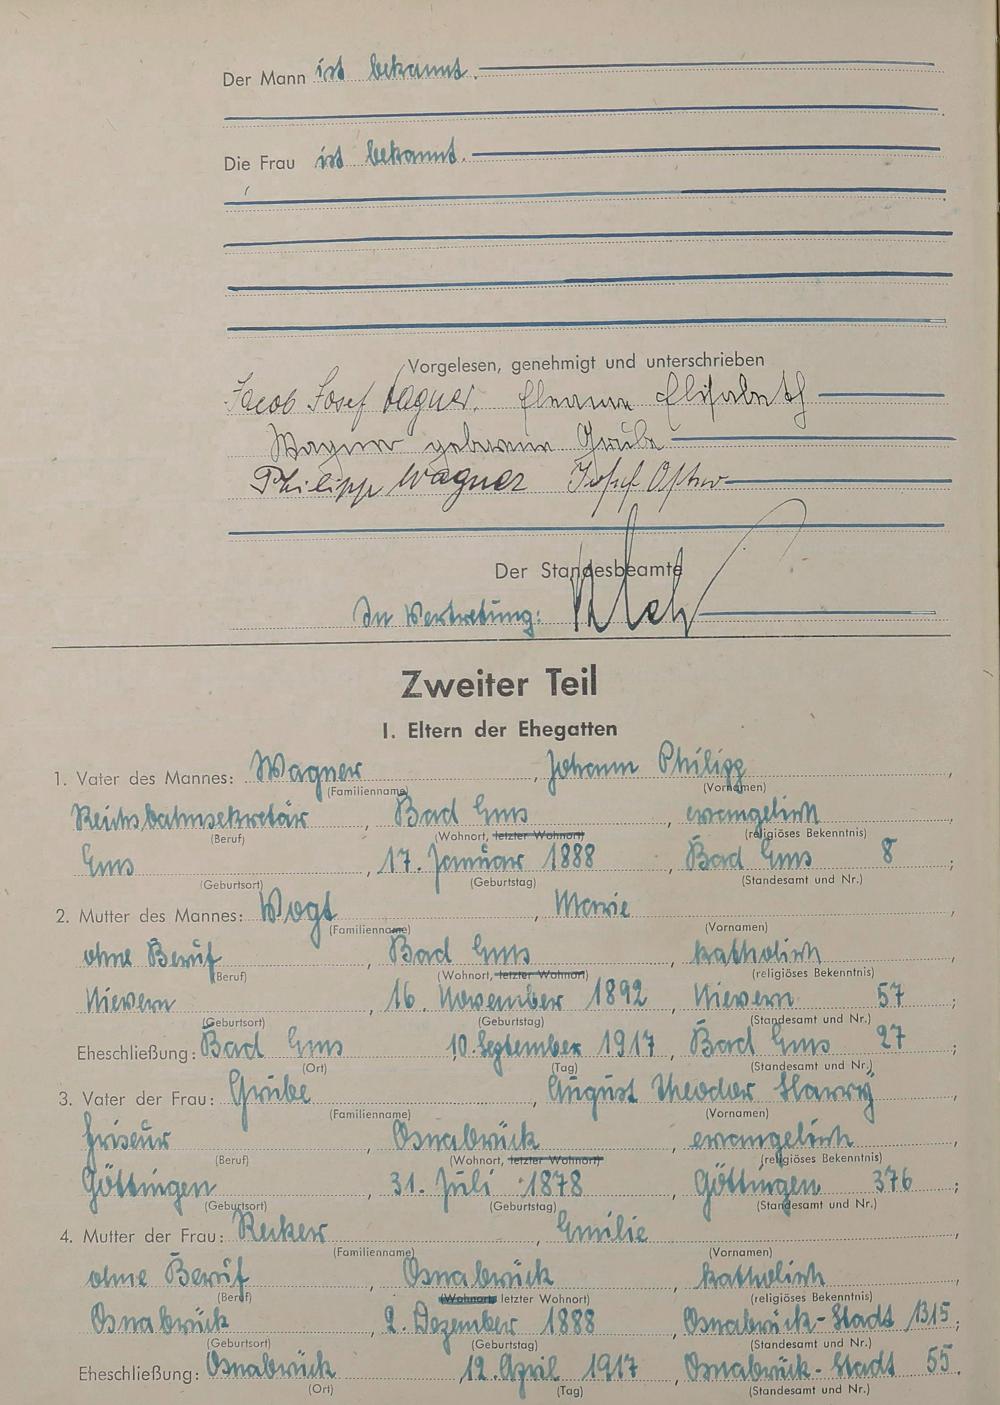 Der Mann ist bekannt.
Die Frau ist bekannt.
Vorgelesen, genehmigt und unterschrieben
Jacob Josef Wagner. Elisabeth
Wagner geborene Grube
Philipp Wagner Josef
Der Standesbeamte
In Vertretung:
Zweiter Teil
I. Eltern der Ehegatten
1. Vater des Mannes: Wagner, Johann Philipp,
(Familienname) (Vornamen)
Reichsbahnsekretär, Bad Ems, evangelisch
(Beruf) (Wohnort, letzter Wohnort) (religiöses Bekenntnis)
Ems, 17. Januar 1888, Bad Ems 8;
(Geburtsort) (Geburtstag) (Standesamt und Nr.)
2. Mutter des Mannes: Vogt, Marie,
(Familienname) (Vornamen)
ohne Beruf, Bad Ems, katholisch,
(Beruf) (Wohnort, letzter Wohnort) (religiöses Bekenntnis)
Nievern, 16. November 1892, Nievern 57;
(Geburtsort) (Geburtstag) (Standesamt und Nr.)
Eheschließung: Bad Ems 10. September 1917, Bad Ems 27;
(Ort) (Tag) (Standesamt und Nr.)
3. Vater der Frau: Grube, August Theodor Harry,
(Familienname) (Vornamen)
Friseur, Osnabrück, evangelisch,
(Beruf) (Wohnort, letzter Wohnort) (religiöses Bekenntnis)
Göttingen, 31. Juli 1878, Göttingen 376;
(Geburtsort) (Geburtstag) (Standesamt und Nr.)
4. Mutter der Frau: Reker, Emilie,
(Familienname) (Vornamen)
ohne Beruf, Osnabrück, katholisch,
(Beruf) (Wohnort, letzter Wohnort) (religiöses Bekenntnis)
Osnabrück, 2. Dezember 1888, Osnabrück-Stadt 1315;
(Geburtsort) (Geburtstag) (Standesamt und Nr.)
Eheschließung: Osnabrück 12. April 1917, Osnabrück-Stadt 55.
(Ort) (Tag) (Standesamt und Nr.)